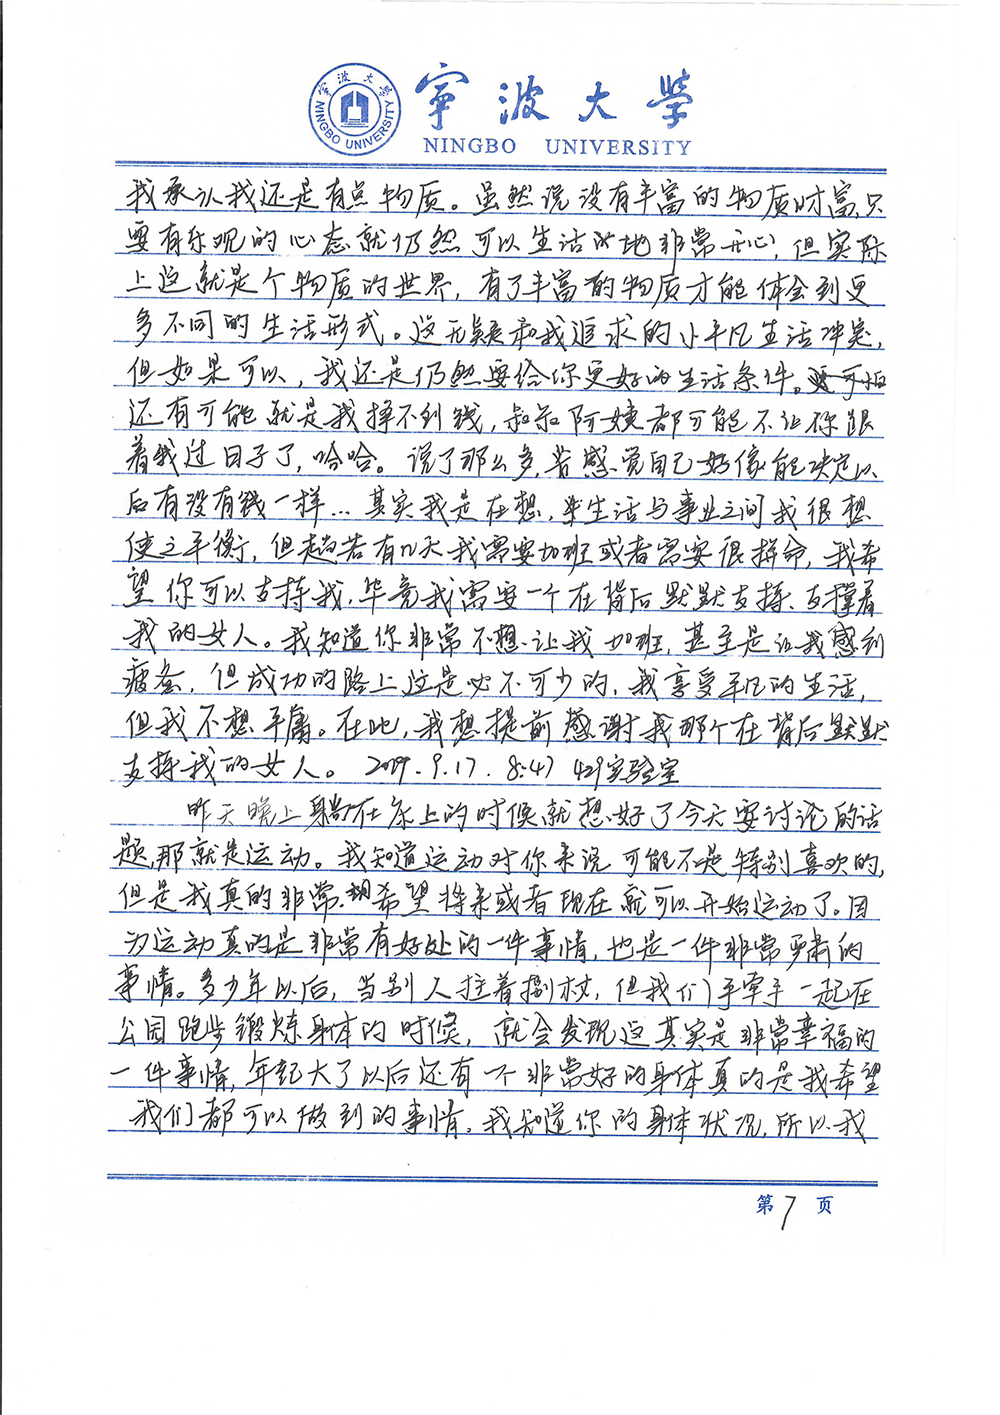 宁波大学
NINGBO UNIVERSITY
宁波大学
NINGBO UNIVERSITY
我承认我还是有点物质。虽然说没有丰富的物质财富,只
要有乐观的心态就仍然可以生活的地非常开心,但实际
上这就是个物质的世界,有了丰富的物质才能体会到更
多不同的生活形式。这无疑和我追求的小平凡生活冲突,
但如果可以,我还是仍然要给你更好的生活条件。可怕
还有可能就是我挣不到钱,叔叔阿姨都可能不让你跟
着我过日子了,哈哈。说了那么多,若感觉自己好像能决定以
后有没有钱一样…其实我是在想,生活与事业之间我很想
使之平衡,但若有几天我需要加班或者需要很拼命,我希
望你可以支持我,毕竟我需要一个在背后默默支持、支撑着
我的女人。我知道你非常不想让我加班,甚至是让我感到
疲惫,但成功的路上这是必不可少的,我享受平凡的生活,
但我不想平庸。在此,我想提前感谢我那个在背后默默
支持我的女人。 2019.9.17. 8:47 429实验室
昨天晚上躺在床上的时候就想好了今天要讨论的话
题,那就是运动。我知道运动对你来说可能不是特别喜欢的,
但是我真的非常希望将来或者现在就可以开始运动了。因
为运动真的是非常有好处的一件事情,也是一件非常严肃的
事情。多少年以后,当别人拄着拐杖,但我们手牵手一起在
公园跑步锻炼身体的时候,就会发现这其实是非常幸福的
一件事情,年纪大了以后还有一个非常好的身体真的是我希望
我们都可以做到的事情。我知道你的身体状况,所以我
第7页